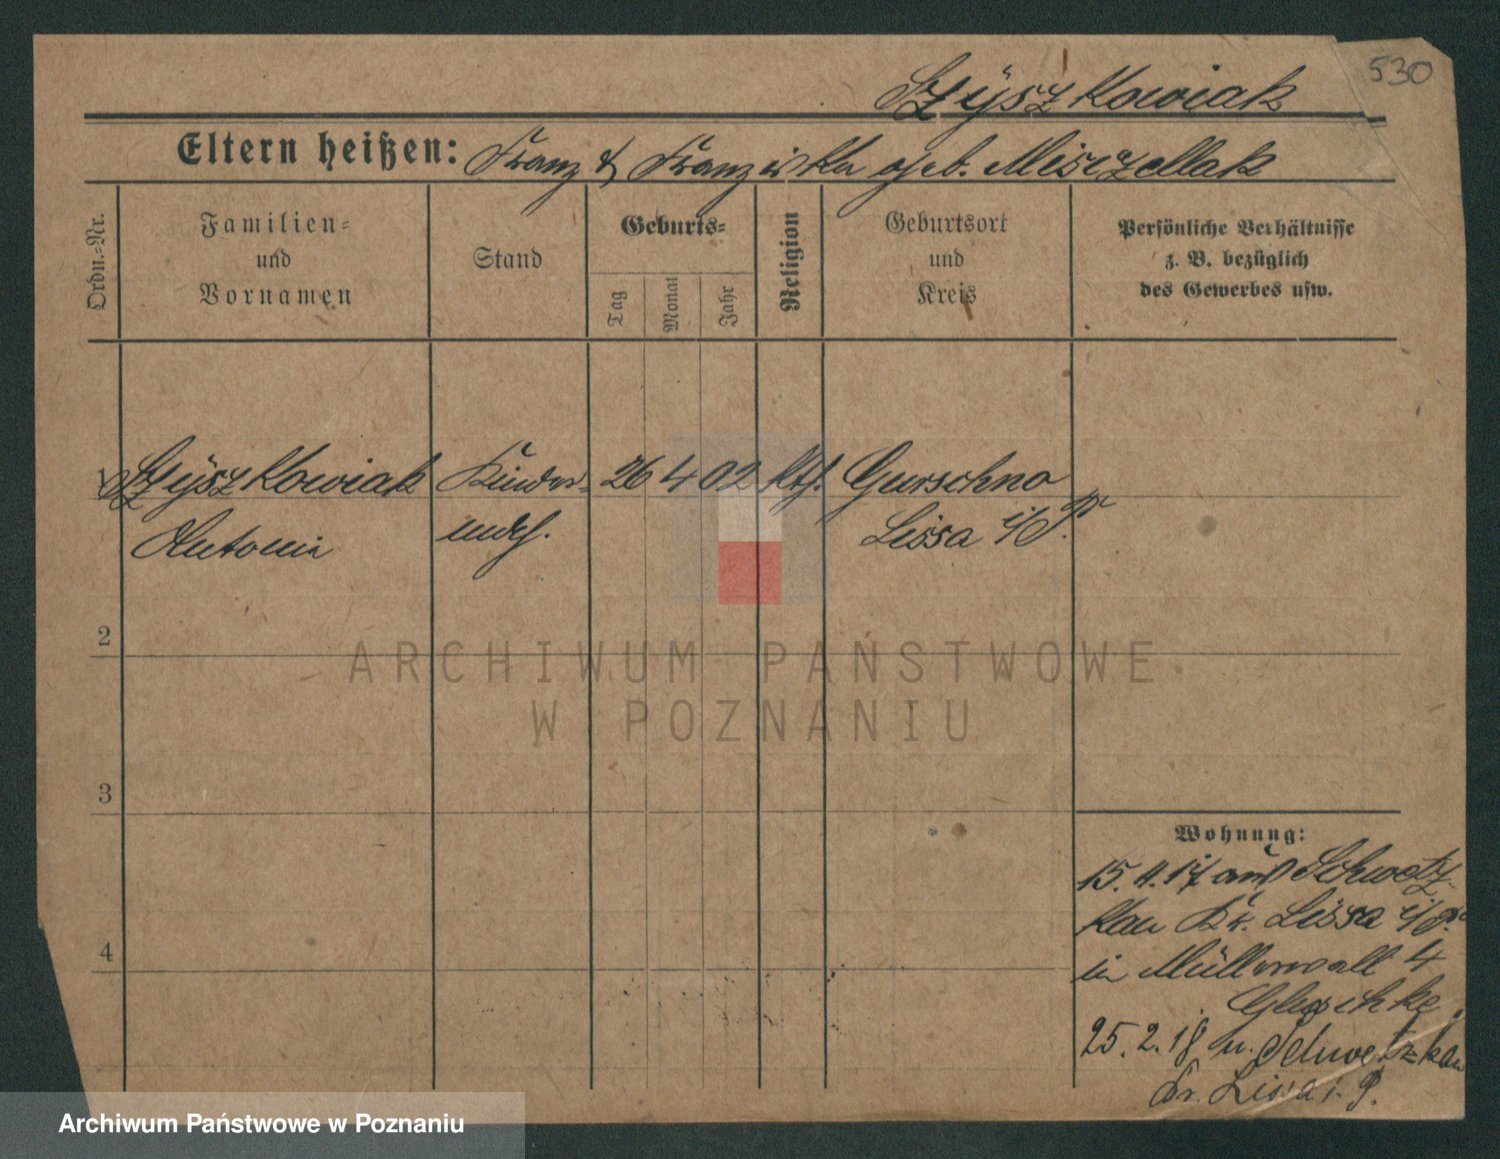 530
Szÿszkowiak
Eltern heißen: Franz & Franziska geb. Misczellak
Ordn.-Nr.
Familien- und Vornamen
Stand
Geburts-
Tag
Monat
Jahr
Religion
Geburtsort und Kreis
Persönliche Verhältnisse
z. B. bezüglich
des Gewerbes usw.
1 Szÿszkowiak Kinder- 26 4 02 kth. Gurschno
Antonie mdch. Lissa i/P.
2
ARCHIWUM PAŃSTWOWE
W POZNANIU
3
Wohnung:
15. 4. 17 aus Schwetz-
kau Kr. Lissa i/P.
4
in Müllerwall 4
25. 2. 18 n. Schwetzkau
Kr. Lissa i. P.
Archiwum Państwowe w Poznaniu